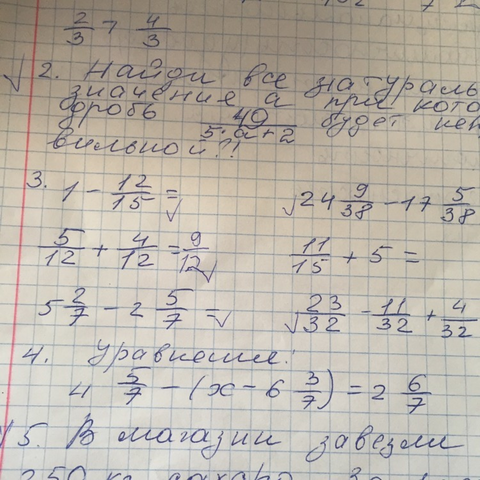 2/3 7 4/3
√2. Найди все натураль
значения а при кото
дробь 49/(5·а+2) будет неп
вильной?!
3. 1 - 12/15 = √24 9/38 - 17 5/38
5/12 + 4/12 = 9/12 11/15 + 5 =
5 2/7 - 2 5/7 = √23/32 - 11/32 + 4/32
4. Уравнение:
4 5/7 - (x - 6 3/7) = 2 6/7
5. В магазин завезли
250 кг сахара